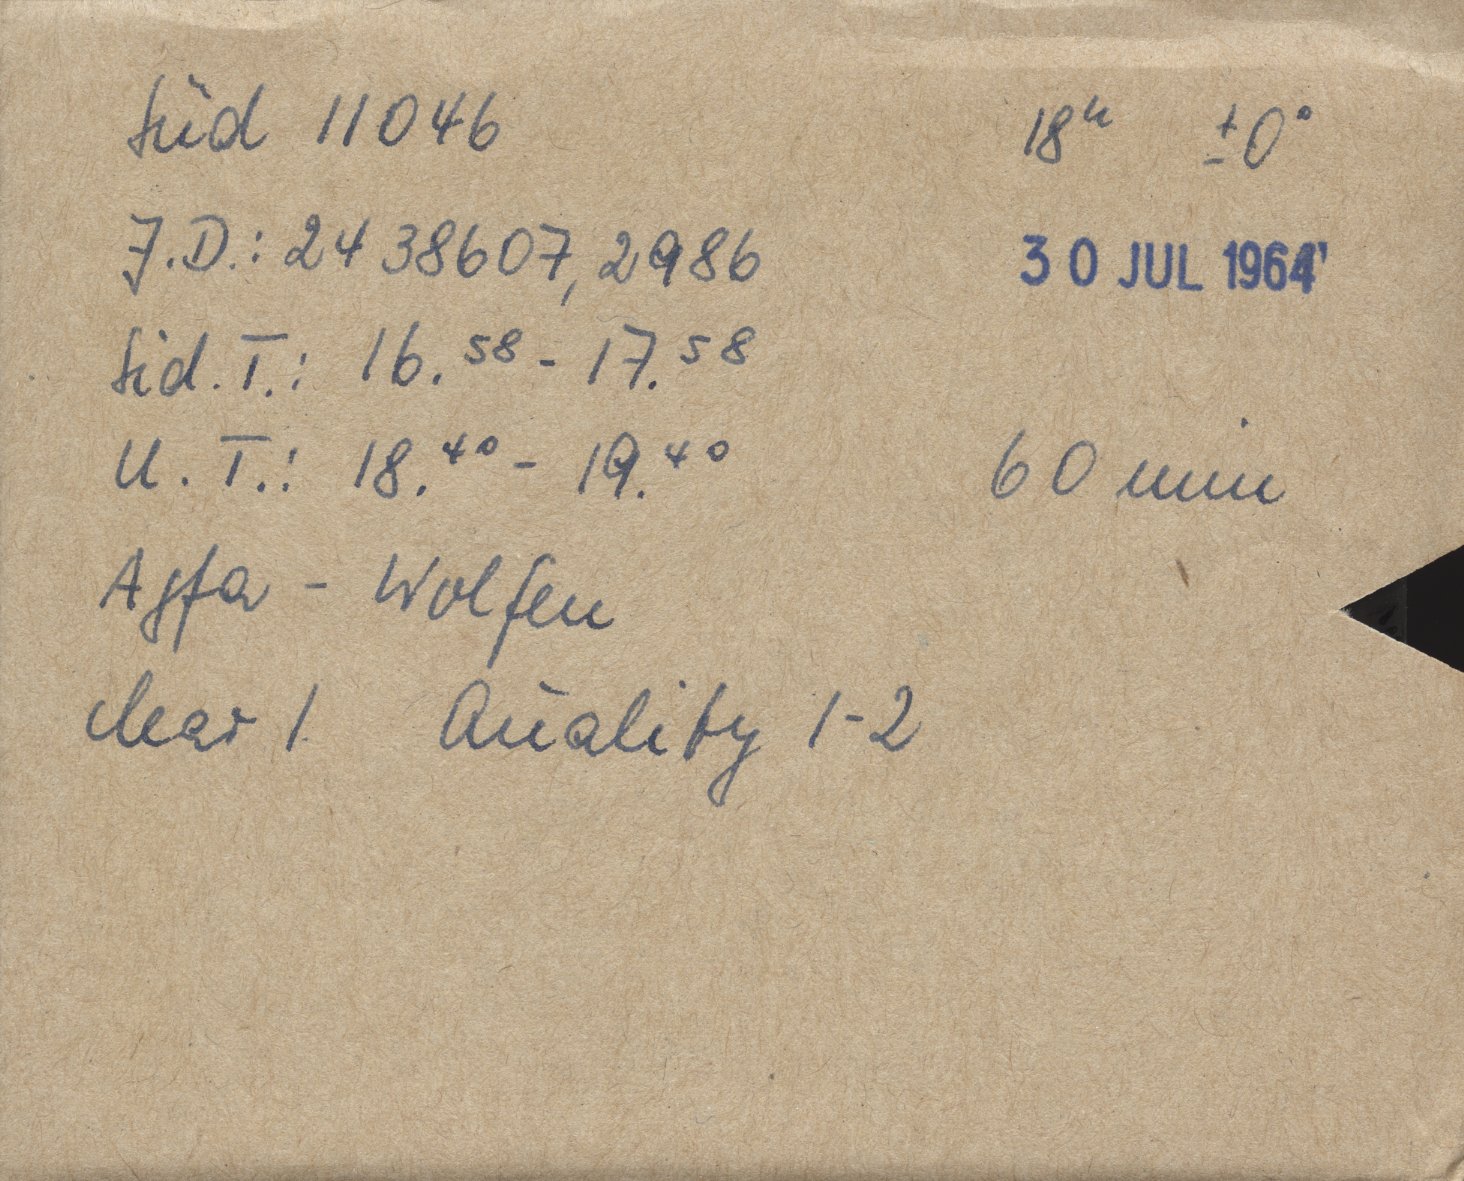 Süd 11046 18h ±0°
J.D.: 2438607,2986 30 JUL 1964
Sid.T.: 16.58 - 17.58
U.T.: 18.40 - 19.40 60 min
Agfa - Wolfen
clear 1 Quality 1-2